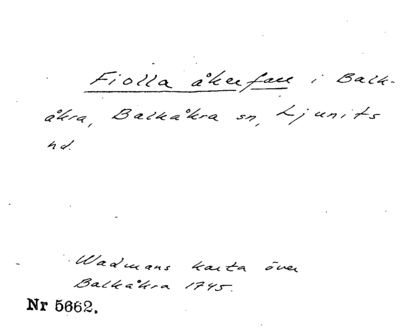 Fiolla åkerfall i Balk-
åkra, Balkåkra sn, Ljunits
hd.
Wadmans karta över
Balkåkra 1745.
Nr 5662.